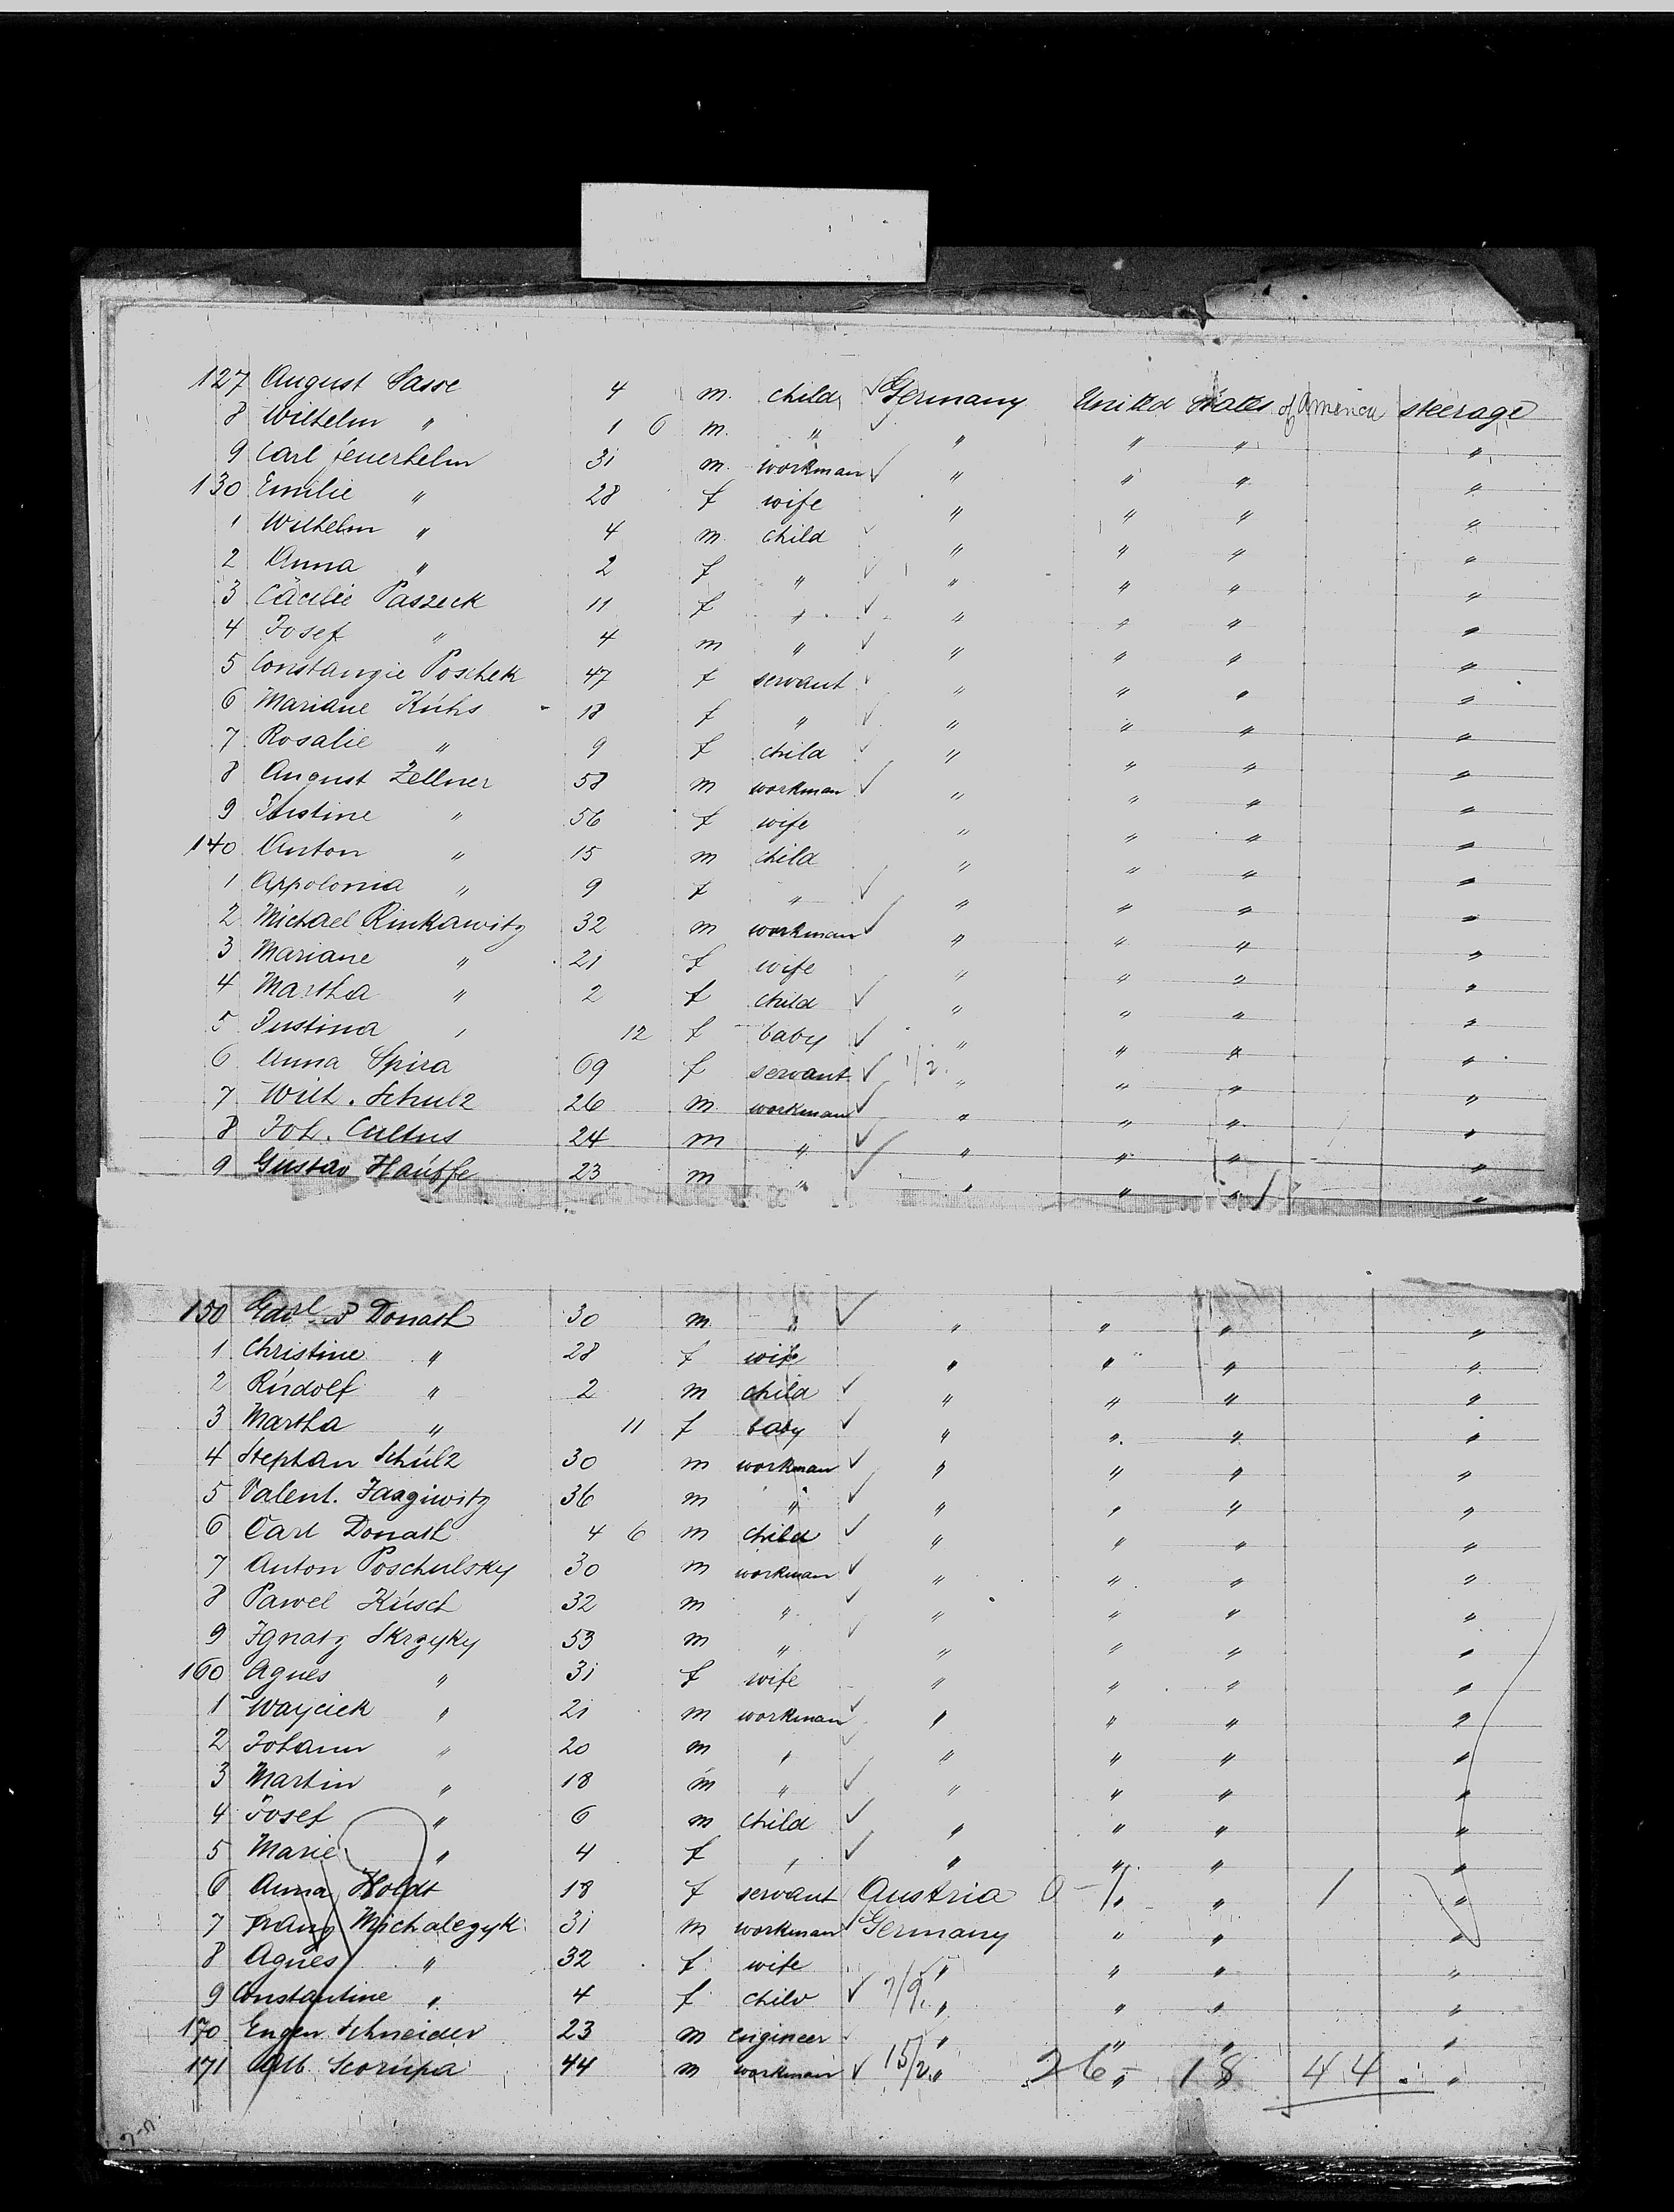 127 August Sasse 4 m. child Germany United States of America steerage
8 Wilhelm " 1 6 m. " " " " "
9 Carl Feuerhelm 31 m. workman " " " "
130 Emilie " 28 f wife " " " "
1 Wilhelm " 4 m. child " " " "
2 Anna " 2 f " " " " "
3 Cäcilie Paszeck 11 f " " " " "
4 Josef " 4 m " " " " "
5 Constangie Poschek 47 f servant " " " "
6 Mariane Kúhs 18 f " " " " "
7 Rosalie " 9 f child " " " "
8 August Zellner 58 m workman " " " "
9 Justine " 56 f wife " " " "
140 Anton " 15 m child " " " "
1 Appolonia " 9 f " " " " "
2 Michael Rinkawitz 32 m workman " " " "
3 Mariane " 21 f wife " " " "
4 Martha " 2 f child " " " "
5 Justina " 12 f baby " " " "
6 Anna Spira 69 f servant 1/2. " " " "
7 Wilh. Schulz 26 m. workman " " " "
8 Joh. Cultus 24 m " " " " "
9 Gustav Haúffe 23 m " " " " "
150 Donath 30 m. " " " " "
1 Christine " 28 f wife " " " "
2 Rúdolf " 2 m child " " " "
3 Martha " 11 f baby " " " "
4 Stephan Schúlz 30 m workman " " " "
5 Valent. Jazgiwitz 36 m " " " " "
6 Carl Donath 4 6 m child " " " "
7 Anton Poschulsky 30 m workman " " " "
8 Pawel Kúsch 32 m " " " " "
9 Ignatz Skrzyky 53 m " " " " "
160 Agnes " 31 f wife " " " "
1 Wayciek " 21 m workman " " " "
2 Johann " 20 m " " " " "
3 Martin " 18 m " " " " "
4 Josef " 6 m child " " " "
5 Marie " 4 f " " " " "
6 Anna Holdt 18 f servant Austria 0 - 1. " 1 "
7 Franz Michalczyk 31 m workman Germany " " "
8 Agnes " 32 f wife " " " "
9 Constantine " 4 f child 7/9. " " " "
170 Eugen Schneider 23 m engineer " " " "
171 Alb. Scorúpa 44 m workman 15/2. " 26 - 18 44 "